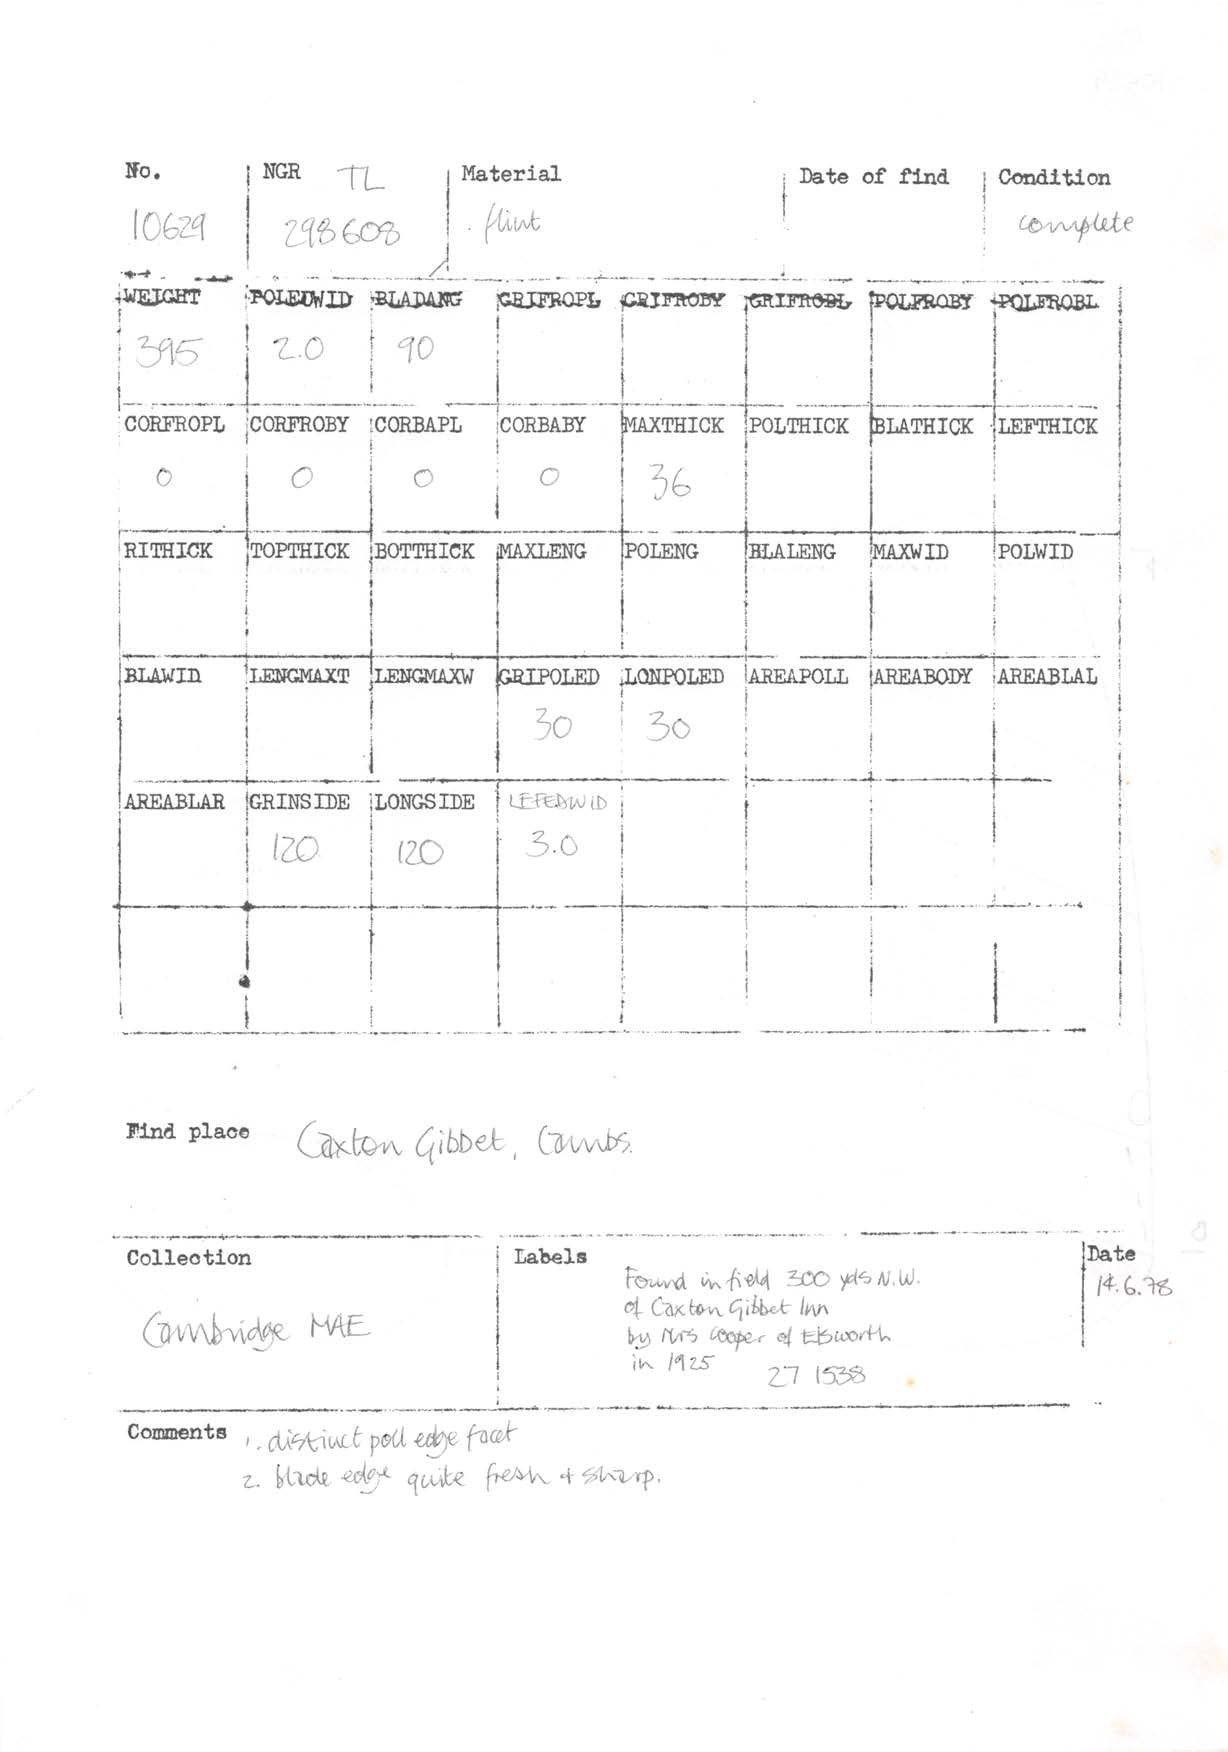 No. NGR TL Material Date of find Condition
10629 298608 flint complete
WEIGHT POLEDWID BLADANG GRIFROPL GRIFROBY GRIFROBL POLFROBY POLFROBL
395 2.0 90
CORFROPL CORFROBY CORBAPL CORBABY MAXTHICK POLTHICK BLATHICK LEFTHICK
0 0 0 0 36
RITHICK TOPTHICK BOTTHICK MAXLENG POLENG BLALENG MAXWID POLWID
BLAWID LENGMAXT LENGMAXW GRIPOLED LONPOLED AREAPOLL AREABODY AREABLAL
30 30
AREABLAR GRINSIDE LONGSIDE LEFEDWID
120 120 3.0
Find place Caxton Gibbet, Cambs.
Collection
Cambridge MAE
Labels
Found in field 300 yds N.W.
of Caxton Gibbet Inn
by Mrs Cooper of Elsworth
in 1925 27 1538
Date
14.6.78
Comments 1. distinct poll edge facet
2. blade edge quite fresh + sharp.